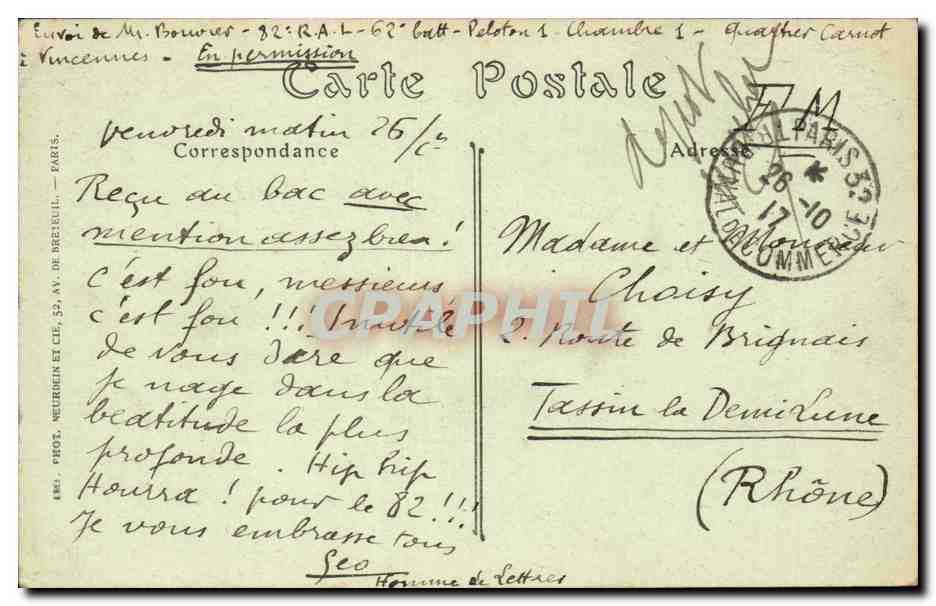 Envoi de Mr. Bouvier - 82e R.A.L - 62e batt - Peloton 1 - Chambre 1 - Quartier Carnot
à Vincennes - En permission
Carte Postale
F.M
Vendredi matin 26/
Correspondance
Adresse
Reçu au bac avec
mention assez bien !
c'est fou, messieurs,
c'est fou !!! Inutile
de vous dire que
je nage dans la
béatitude la plus
profonde. Hip hip
Hourra ! pour le 82 !!!
Je vous embrasse tous
Geo
Homme de Lettres
Madame et Monsieur
Choisy
2. Route de Brignais
Tassin la Demi Lune
(Rhône)
PARIS 32
26 -10
17
COMMERCE
PHOT. NEURDEIN ET CIE, 52, AV. DE BRETEUIL. — PARIS.
CPAPHIL